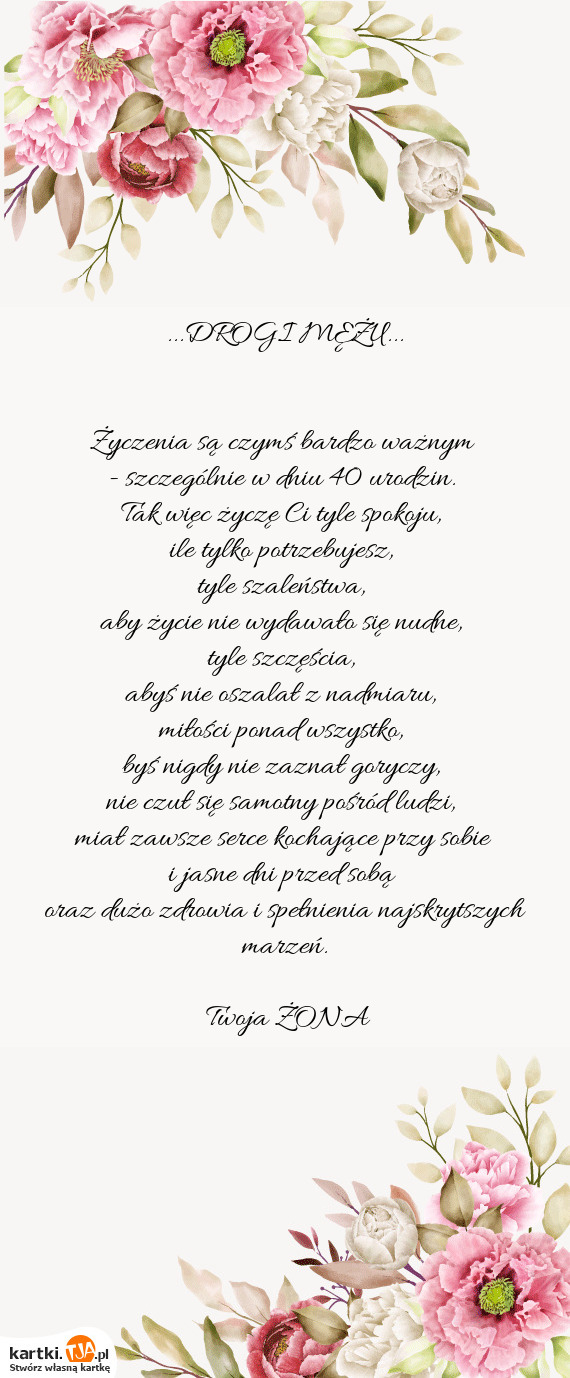 ...DROGI MĘŻU...
Życzenia są czymś bardzo ważnym
- szczególnie w dniu 40 urodzin.
Tak więc życzę Ci tyle spokoju,
ile tylko potrzebujesz,
tyle szaleństwa,
aby życie nie wydawało się nudne,
tyle szczęścia,
abyś nie oszalał z nadmiaru,
miłości ponad wszystko,
byś nigdy nie zaznał goryczy,
nie czuł się samotny pośród ludzi,
miał zawsze serce kochające przy sobie
i jasne dni przed sobą
oraz dużo zdrowia i spełnienia najskrytszych
marzeń.
Twoja ŻONA
kartki.TJA.pl
Stwórz własną kartkę